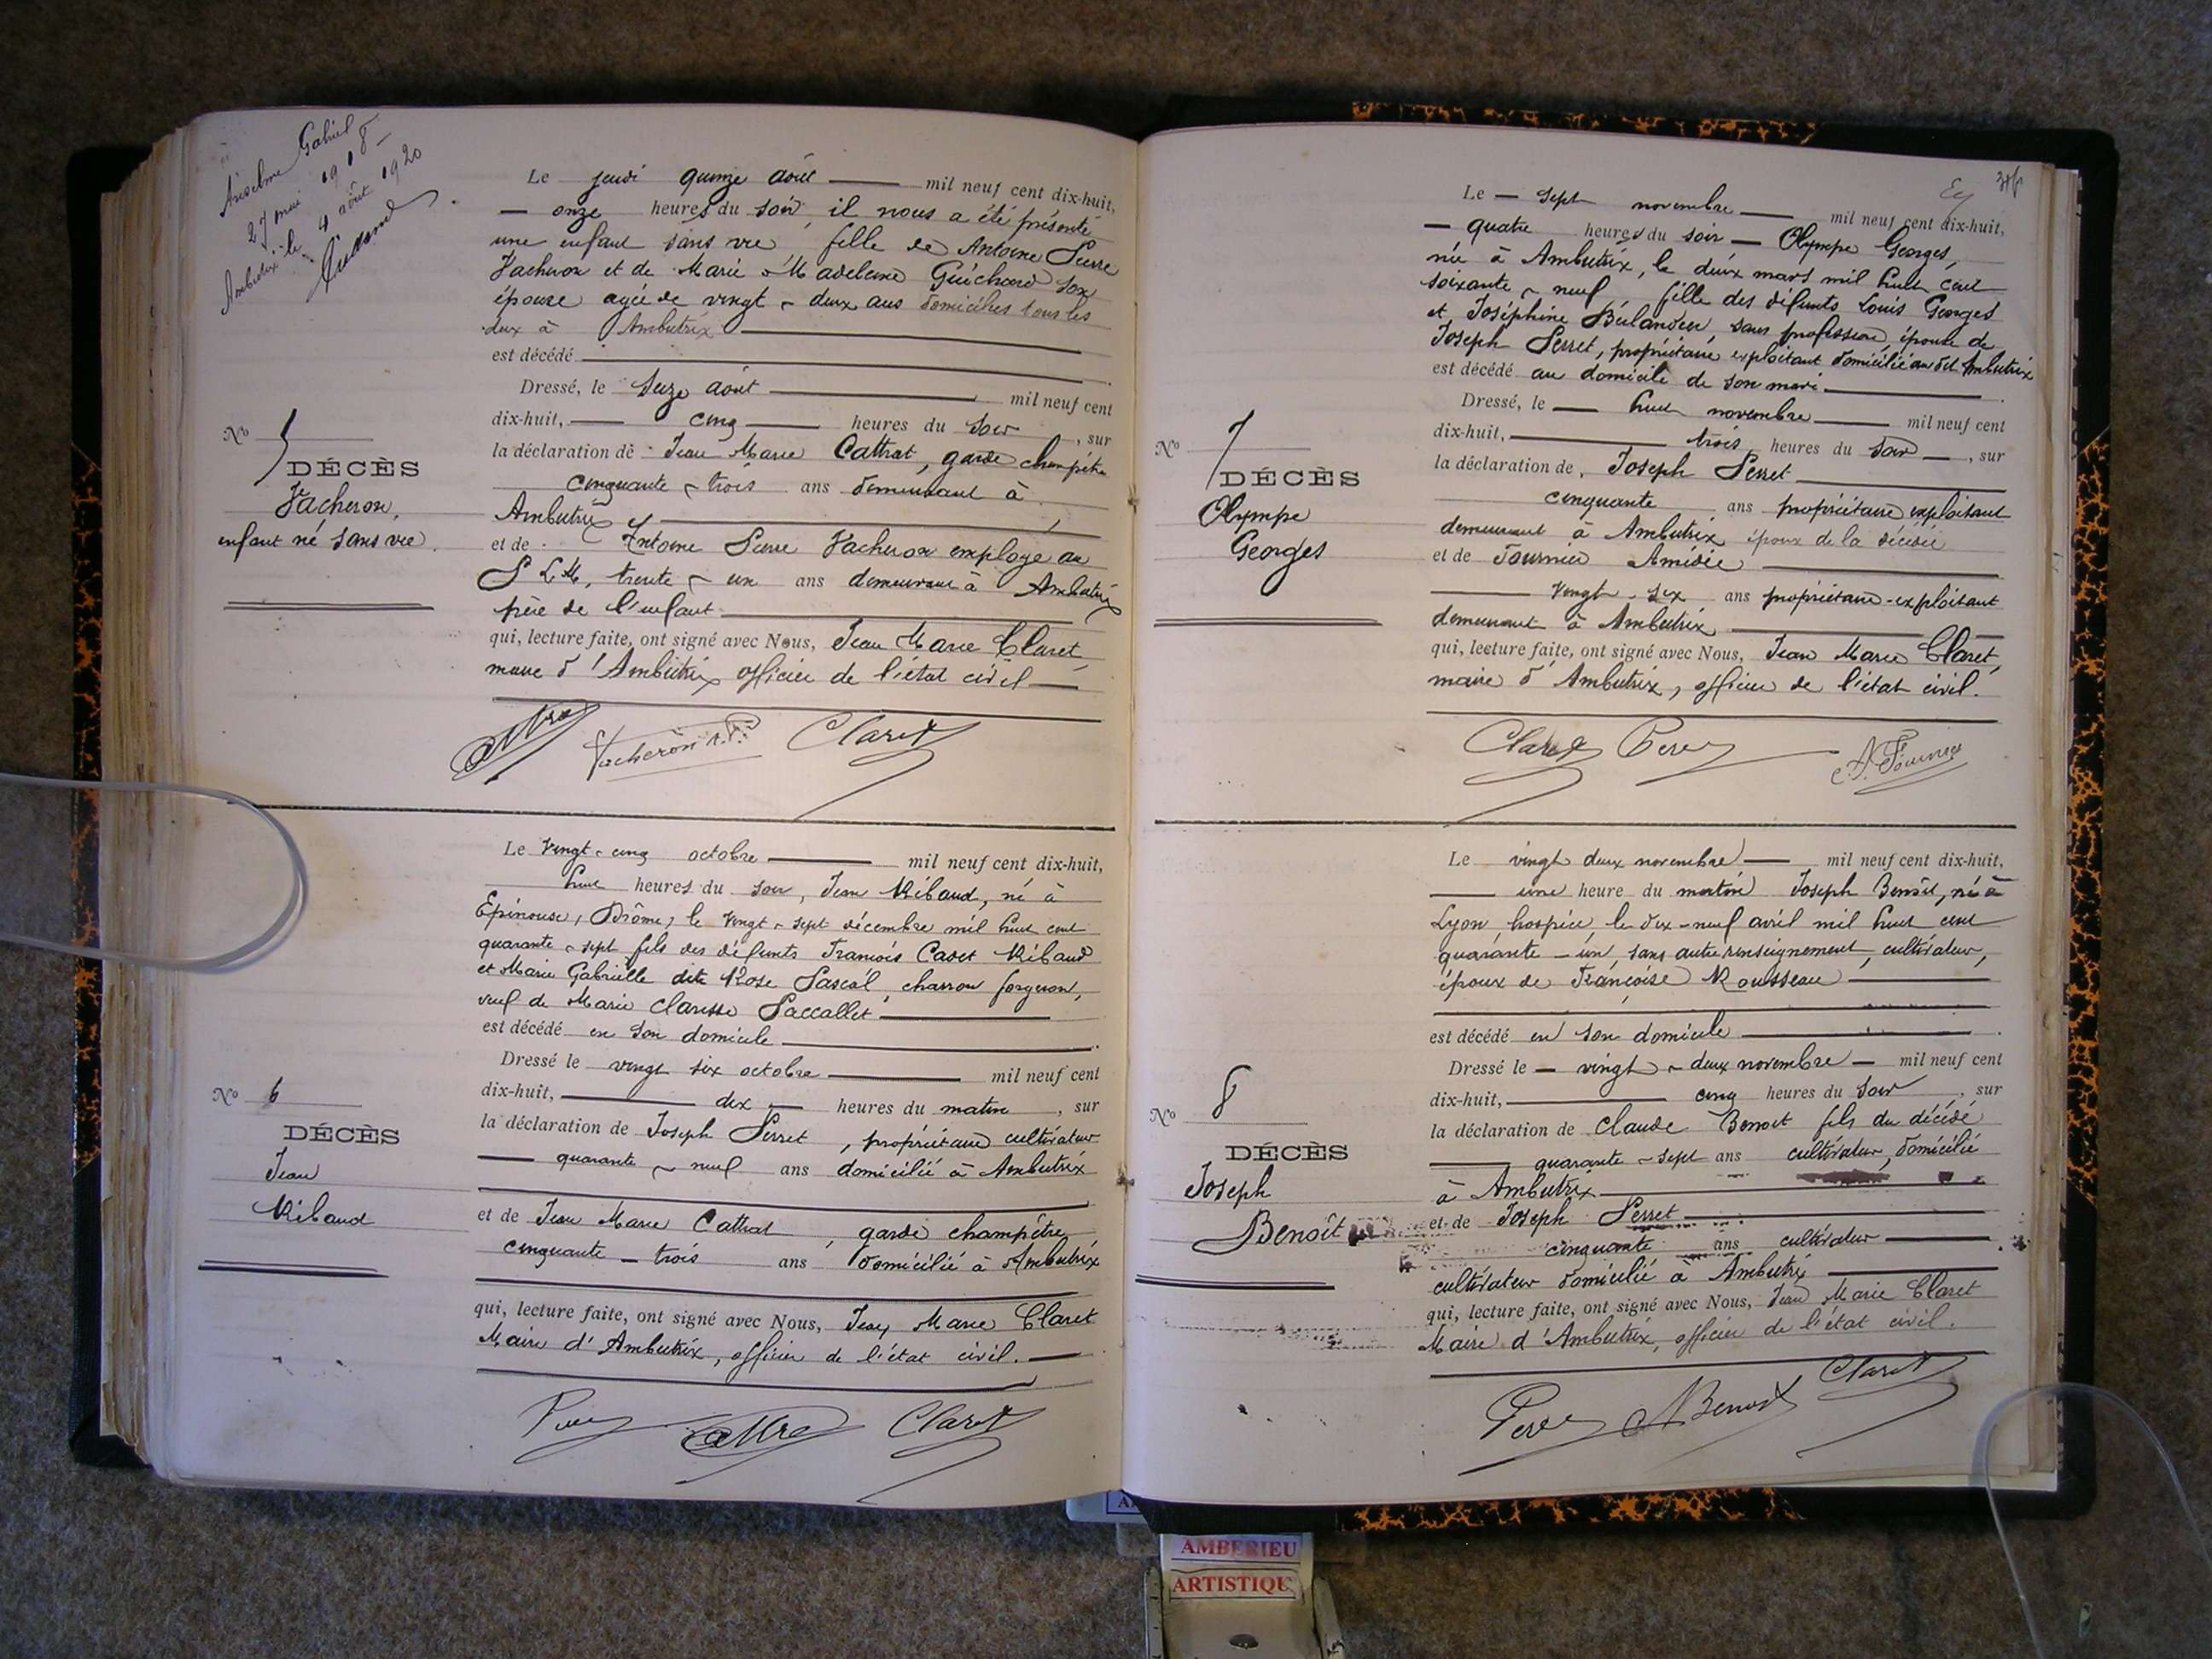 Anselme Gabriel
27 mai 1918
Ambutrix le 4 août 1920
Le jeudi quinze août mil neuf cent dix-huit,
onze heures du soir il nous a été présenté
une enfant sans vie, fille de Antoine Pierre
Vacheron et de Marie Madeleine Guichard son
épouse agée de vingt-deux ans domiciliés tous les
deux à Ambutrix
est décédé
Dressé, le seize août mil neuf cent
dix-huit, cinq heures du soir, sur
la déclaration de Jean Marie Cattrat, garde champêtre
cinquante-trois ans demeurant à
Ambutrix
et de Antoine Pierre Vacheron employé au
P L M, trente-un ans demeurant à Ambutrix
père de l'enfant
qui, lecture faite, ont signé avec Nous, Jean Marie Claret
maire d'Ambutrix officier de l'état civil
Vacheron Claret
No 5
DÉCÈS
Vacheron,
enfant né sans vie.
Le vingt-cinq octobre mil neuf cent dix-huit,
huit heures du soir, Jean Ribaud, né à
Epinouse, Drôme, le vingt-sept décembre mil huit cent
quarante-sept fils des défunts François Cadet Ribaud
et Marie Gabrielle dite Rose Pascal, charron forgeron,
veuf de Marie Clarisse Paccallet
est décédé en son domicile
Dressé le vingt six octobre mil neuf cent
dix-huit, dix heures du matin, sur
la déclaration de Joseph Perret, propriétaire cultivateur
quarante-neuf ans domicilié à Ambutrix
et de Jean Marie Cattrat, garde champêtre
cinquante-trois ans domicilié à Ambutrix
qui, lecture faite, ont signé avec Nous, Jean Marie Claret
Maire d'Ambutrix, officier de l'état civil.
Claret
No 6
DÉCÈS
Jean
Ribaud
Le sept novembre mil neuf cent dix-huit,
quatre heures du soir Olympe Georges,
née à Ambutrix, le deux mars mil huit cent
soixante-neuf fille des défunts Louis Georges
et Joséphine, sans profession, épouse de
Joseph Perret, propriétaire exploitant domicilié au dit Ambutrix
est décédé au domicile de son mari
Dressé, le huit novembre mil neuf cent
dix-huit, trois heures du soir, sur
la déclaration de, Joseph Perret
cinquante ans propriétaire exploitant
demeurant à Ambutrix époux de la décédée
et de Fournier Amédée
vingt-six ans propriétaire-exploitant
demeurant à Ambutrix
qui, lecture faite, ont signé avec Nous, Jean Marie Claret,
maire d'Ambutrix, officier de l'état civil.
Claret Perret A. Fournier
No 7
DÉCÈS
Olympe
Georges
Le vingt deux novembre mil neuf cent dix-huit,
une heure du matin Joseph Benoît, né à
Lyon hospice, le dix-neuf avril mil huit cent
quarante-un, sans autre renseignement, cultivateur,
époux de Françoise Rousseau
est décédé en son domicile
Dressé le vingt-deux novembre mil neuf cent
dix-huit, cinq heures du soir, sur
la déclaration de Claude Benoit fils du décédé
quarante-sept ans cultivateur, domicilié
à Ambutrix
et de Joseph Perret
cinquante ans cultivateur
cultivateur domicilié à Ambutrix
qui, lecture faite, ont signé avec Nous, Jean Marie Claret
Maire d'Ambutrix, officier de l'état civil.
Perret Benoit Claret
No 8
DÉCÈS
Joseph
Benoît
AMBERIEU
ARTISTIQU